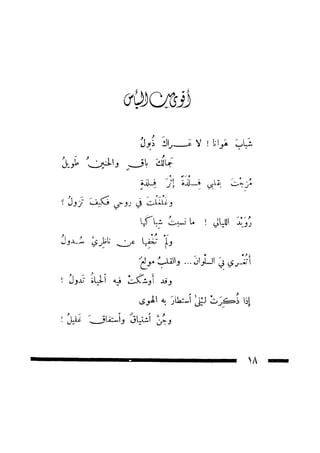 أقوى من اليأس
شَبابَ هَوانا ! لا عَـــراكَ ذُبولُ
جَمالُكَ باقٍ والحَنينُ طَويلُ
مُزِجْتَ بقلبي فِلْذَةً إثْرَ فِلذةٍ
وغَلغَلْتَ في روحي فكَيفَ تَزولُ ؟
رُوَيْدَ الليالي ! ما نسيتُ شِباكَها
ولَمْ تُخْفِها عن ناظِرَيَّ سُدولُ
أتُغْري في السلوان... والقلبُ مولَعٌ
وقد أوشَكَتْ فيه الحَياةُ تَدولُ ؟
إذا ذُكِرَتْ لَيْلَىٰ استطارَ به الهوى
وجُنَّ اشتياقٌ واستفاقَ غَليلُ !
١٨